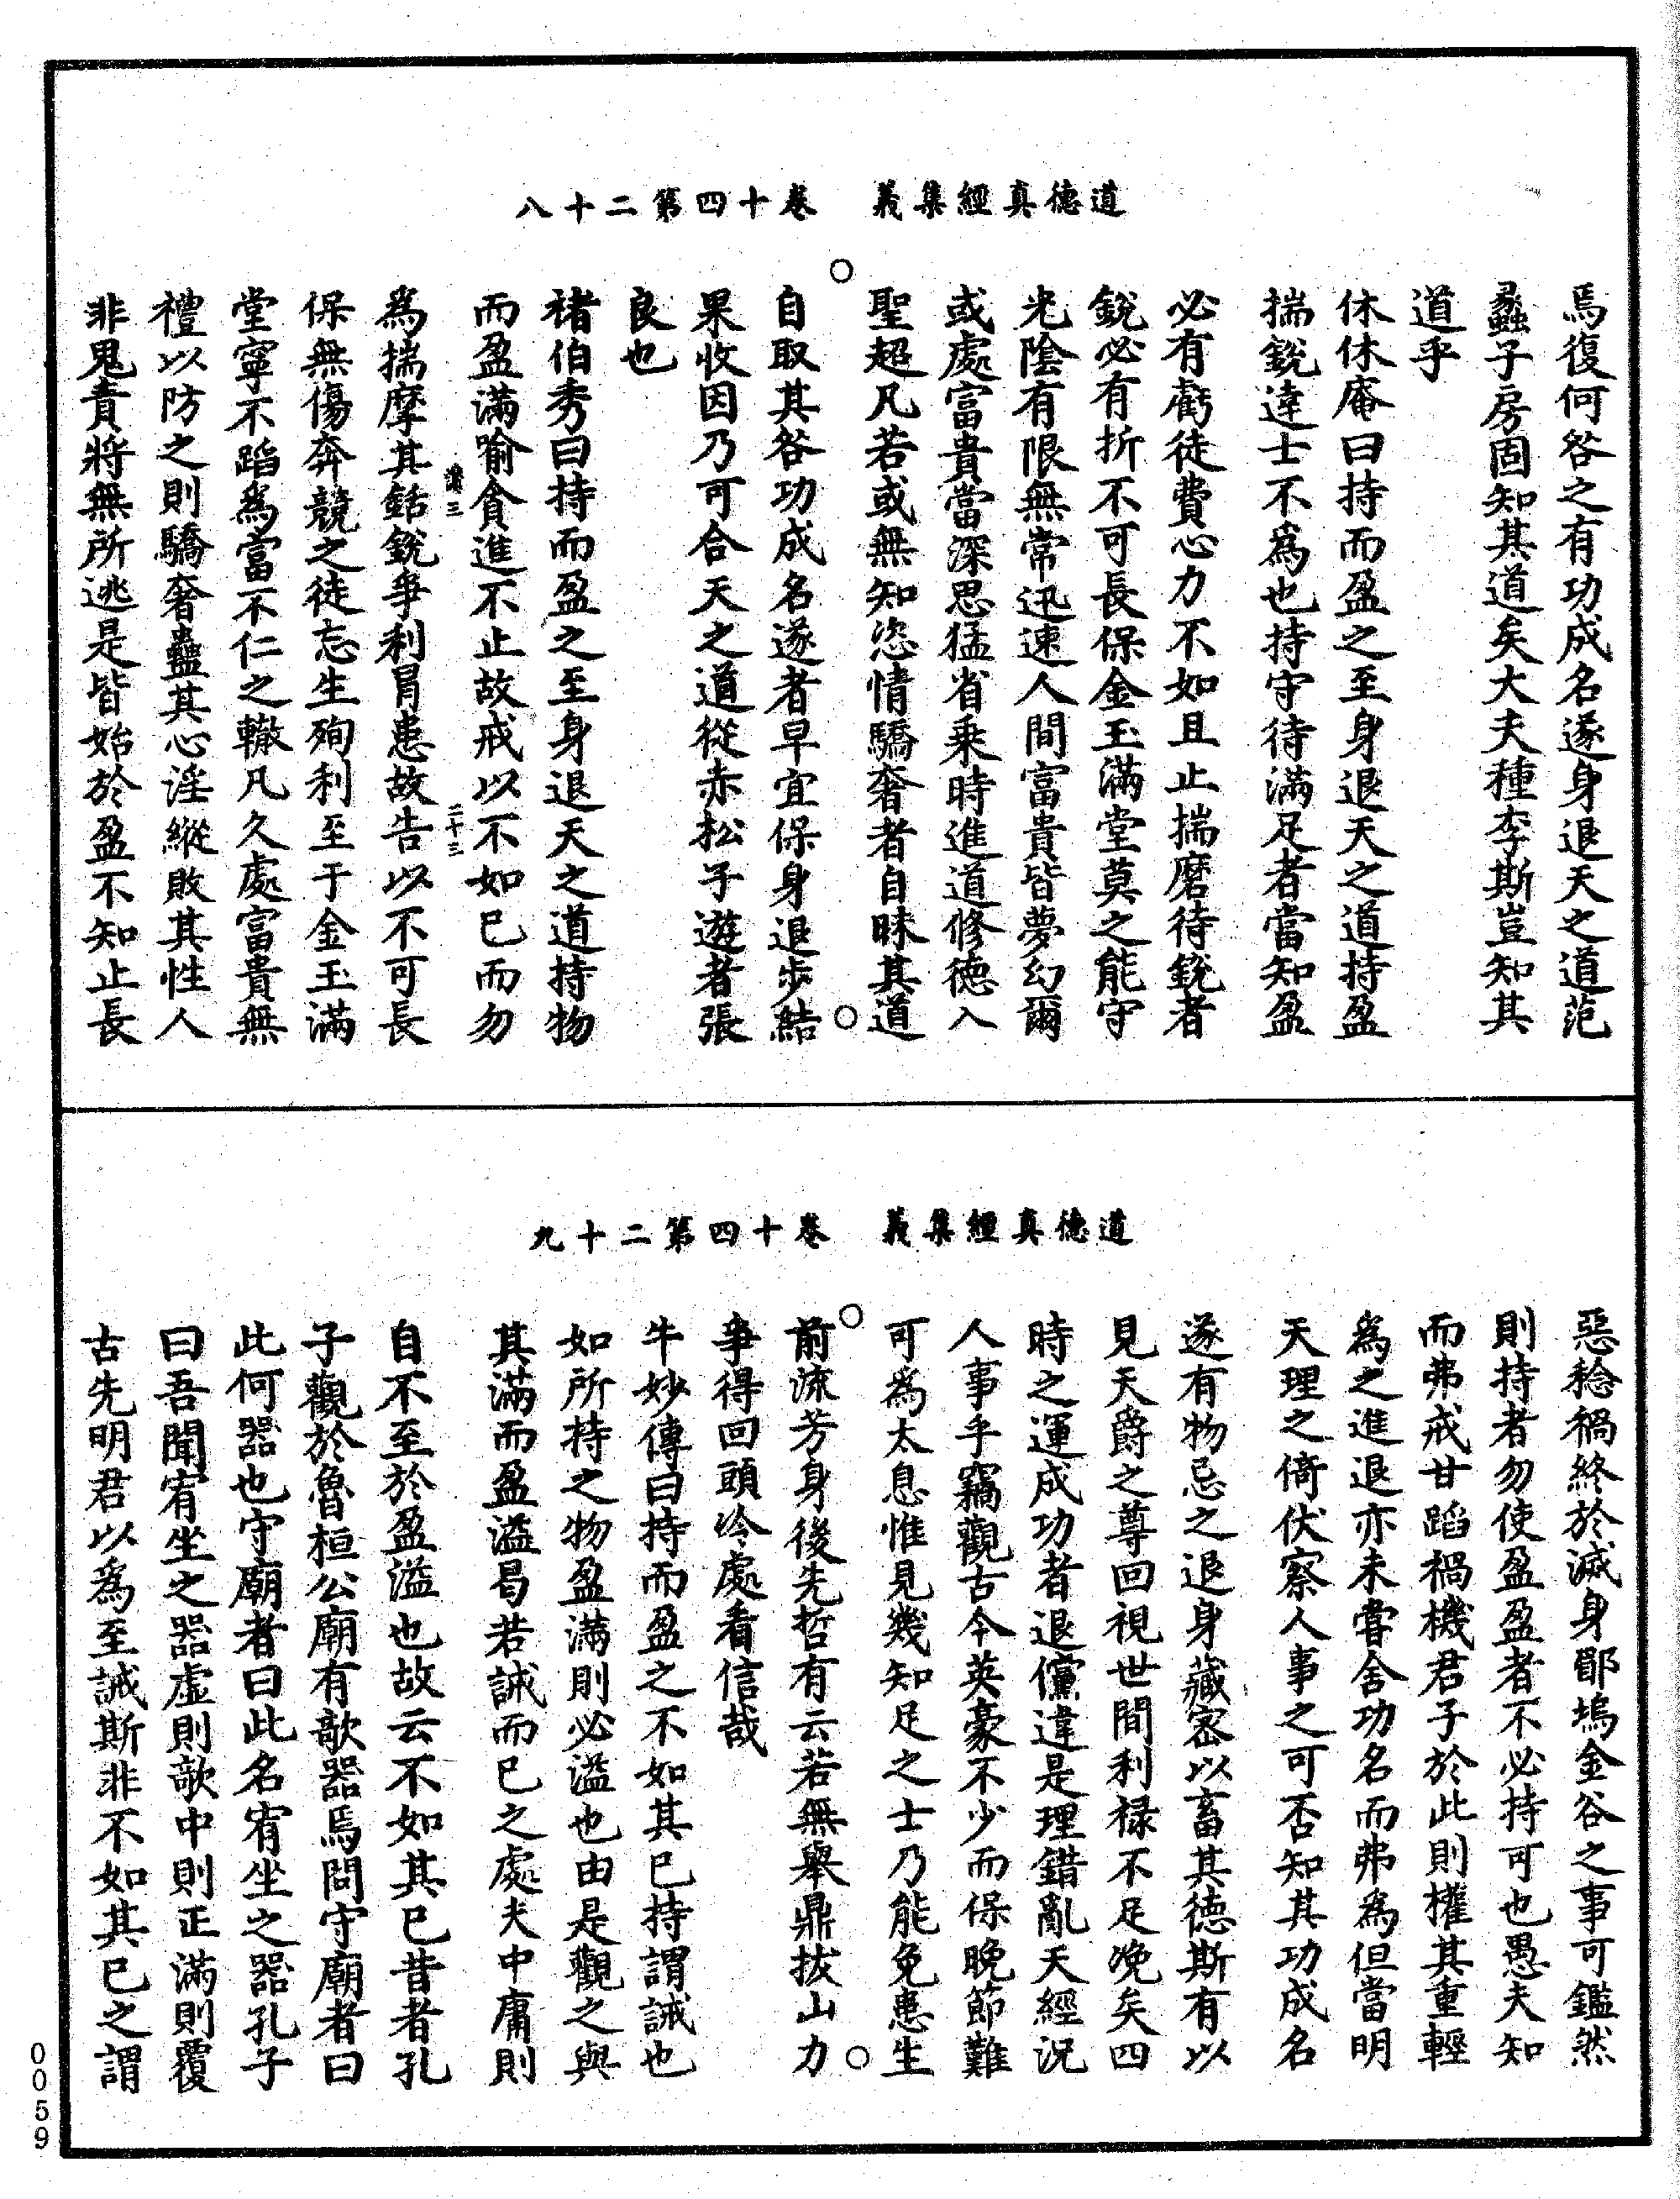 道德真經集義　卷十四第二十八
焉復何咎之有功成名遂身退天之道范
蠡子房固知其道矣大夫種李斯豈知其
道乎
休休庵曰持而盈之至身退天之道持盈
揣銳達士不為也持守待滿足者當知盈
必有虧徒費心力不如且止揣磨待銳者
銳必有折不可長保金玉滿堂莫之能守
光陰有限無常迅速人間富貴皆夢幻爾
或處富貴當深思猛省乘時進道修德入
聖超凡若或無知恣情驕奢者自昧其道
自取其咎功成名遂者早宜保身退步結
果收因乃可合天之道從赤松子遊者張
良也
褚伯秀曰持而盈之至身退天之道持物
而盈滿喻貪進不止故戒以不如已而勿
為揣摩其銛銳爭利冐患故告以不可長
保無傷奔競之徒忘生殉利至于金玉滿
堂寧不蹈為當不仁之轍凡久處富貴無
禮以防之則驕奢蠱其心淫縱敗其性人
非鬼責將無所逃是皆始於盈不知止長
道德真經集義　卷十四第二十九
惡稔禍終於滅身郿塢金谷之事可鑑然
則持者勿使盈盈者不必持可也愚夫知
而弗戒甘蹈禍機君子於此則權其重輕
為之進退亦未嘗舍功名而弗為但當明
天理之倚伏察人事之可否知其功成名
遂有物忌之退身藏密以畜其德斯有以
見天爵之尊回視世間利祿不足浼矣四
時之運成功者退儻違是理錯亂天經況
人事乎竊觀古今英豪不少而保晚節難
可為太息惟見幾知足之士乃能免患生
前流芳身後先哲有云若無舉鼎拔山力
爭得回頭冷處看信哉
牛妙傳曰持而盈之不如其已持謂誡也
如所持之物盈滿則必溢也由是觀之與
其滿而盈溢曷若誠而已之處夫中庸則
自不至於盈溢也故云不如其已昔者孔
子觀於魯桓公廟有欹器焉問守廟者曰
此何器也守廟者曰此名宥坐之器孔子
曰吾聞宥坐之器虛則欹中則正滿則覆
古先明君以為至誠斯非不如其已之謂
0059